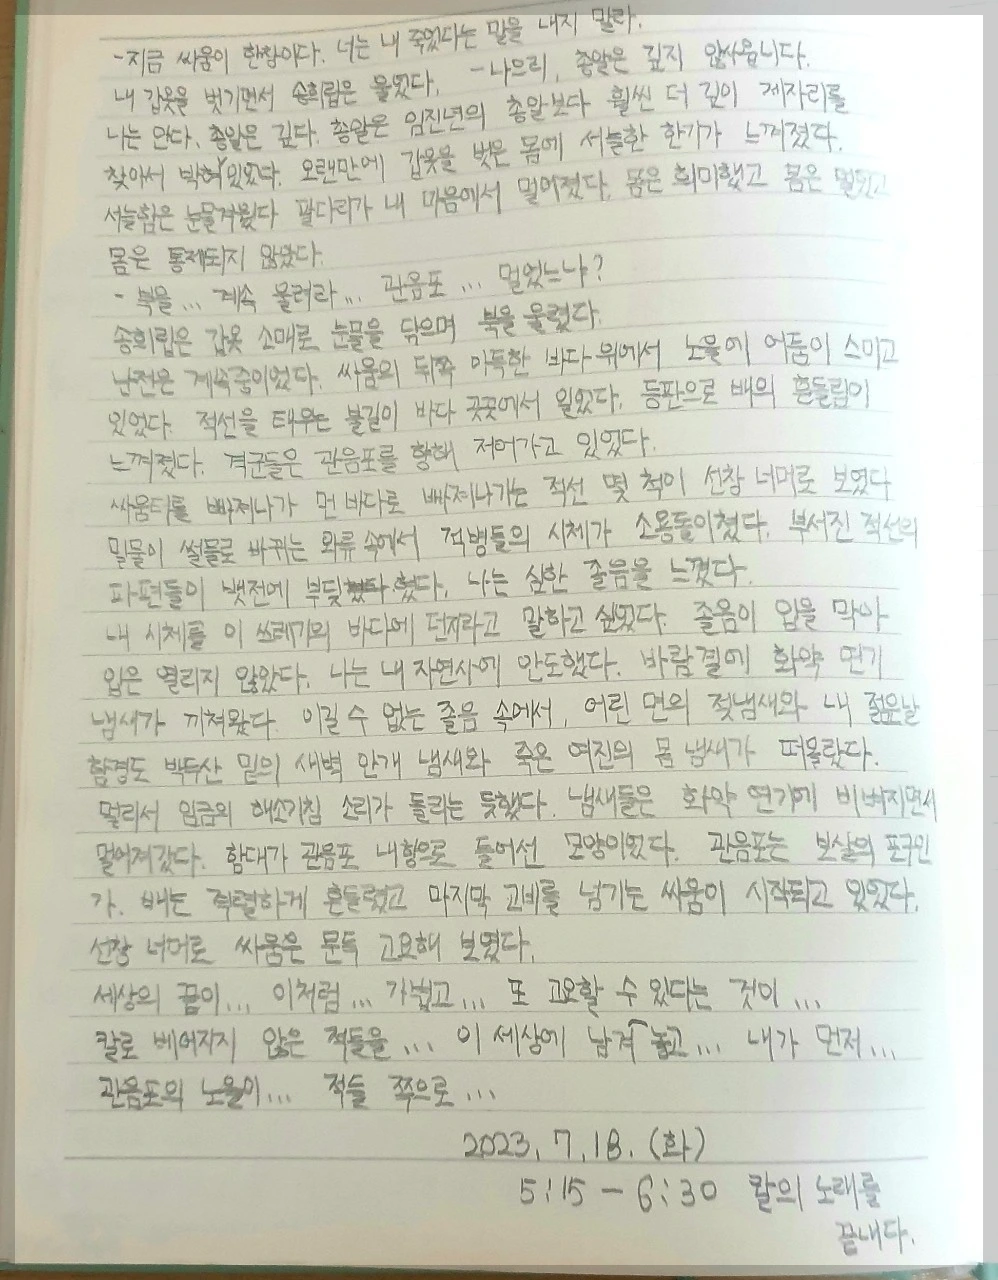 -지금 싸움이 한창이다. 너는 내 죽었다는 말을 내지 말라.
내 갑옷을 벗기면서 송희립은 울었다. -나으리, 총알은 깊지 않사옵니다.
나는 안다. 총알은 깊다. 총알은 임진년의 총알보다 훨씬 더 깊이 제자리를
찾아서 박혀 있었다. 오랜만에 갑옷을 벗은 몸에 서늘한 한기가 느껴졌다.
서늘함은 눈물겨웠다 팔다리가 내 마음에서 멀어졌다. 몸은 희미했고 몸은 멀었고
몸은 통제되지 않았다.
- 북을... 계속 울려라... 관음포... 멀었느냐?
송희립은 갑옷 소매로 눈물을 닦으며 북을 울렸다.
난전은 계속중이었다. 싸움의 뒤쪽 아득한 바다 위에서 노을에 어둠이 스미고
있었다. 적선을 태우는 불길이 바다 곳곳에서 일었다. 등판으로 배의 흔들림이
느껴졌다. 격군들은 관음포를 향해 저어가고 있었다.
싸움터를 빠져나가 먼 바다로 빠져나가는 적선 몇 척이 선창 너머로 보였다
밀물이 썰물로 바뀌는 와류 속에서 적병들의 시체가 소용돌이쳤다. 부서진 적선의
파편들이 뱃전에 부딪혔다. 나는 심한 졸음을 느꼈다.
내 시체를 이 쓰레기의 바다에 던지라고 말하고 싶었다. 졸음이 입을 막아
입은 열리지 않았다. 나는 내 자연사에 안도했다. 바람결에 화약 연기
냄새가 끼쳐왔다. 이길 수 없는 졸음 속에서, 어린 면의 젖냄새와 내 젊은날
함경도 백두산 밑의 새벽 안개 냄새와 죽은 여진의 몸 냄새가 떠올랐다.
멀리서 임금의 해소기침 소리가 들리는 듯했다. 냄새들은 화약 연기에 비벼지면서
멀어져갔다. 함대가 관음포 내항으로 들어선 모양이었다. 관음포는 보살의 포구인
가. 배는 격렬하게 흔들렸고 마지막 고비를 넘기는 싸움이 시작되고 있었다.
선창 너머로 싸움은 문득 고요해 보였다.
세상의 끝이... 이처럼... 가볍고... 또 고요할 수 있다는 것이...
칼로 베어지지 않은 적들을... 이 세상에 남겨 놓고... 내가 먼저...
관음포의 노을이... 적들 쪽으로...
2023. 7. 18. (화)
5:15 - 6:30 칼의 노래를
끝내다.